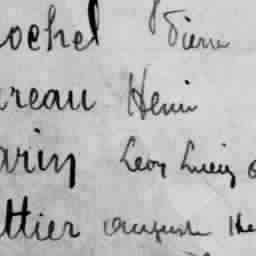 ochel Pierre
reau Henri
arin Leon Lucien
ttier auguste He